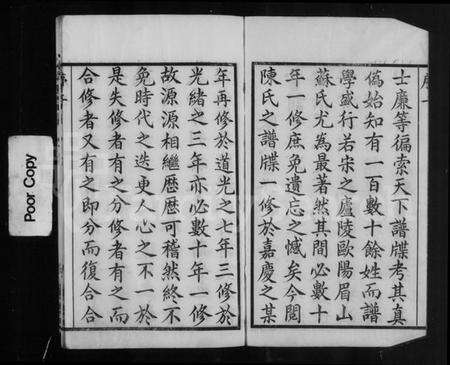 士廉等徧索天下譜牒考其真
僞始知有一百數十餘姓而譜
學盛行若宋之廬陵歐陽眉山
蘇氏尤為最著然其間必數十
年一修庶免遺忘之憾矣今閱
陳氏之譜牒一修於嘉慶之某
年再修於道光之七年三修於
光緒之三年亦必數十年一修
故源源相繼歷歷可稽然終不
免時代之迭更人心之不一於
是失修者有之分修者有之而
合修者又有之即分而復合合
Poor Copy